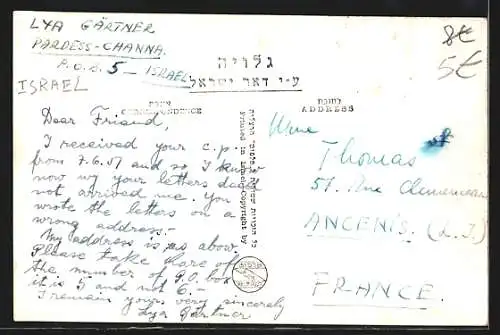 LYA GÄRTNER
PARDESS-CHANNA.
P.O.B. 5 - ISRAEL
ISRAEL
8€
5€
גלויה
ע״י דאר ישראל
CORRESPONDENCE
ADDRESS
Dear Friend,
I received your c.p.
from 7.6.51 and so I know
now wy your letters
not arrived me. You
wrote the letters on a
wrong address.
My address is as abow.
Please take
the number of P.O. box
it is 5 and not 6 -
I remain yours very sincerely
Lya Gärtner
Printed in Israel Copyright by
Mme
Thomas
51, Rue
ANCENIS (L.I.)
FRANCE.